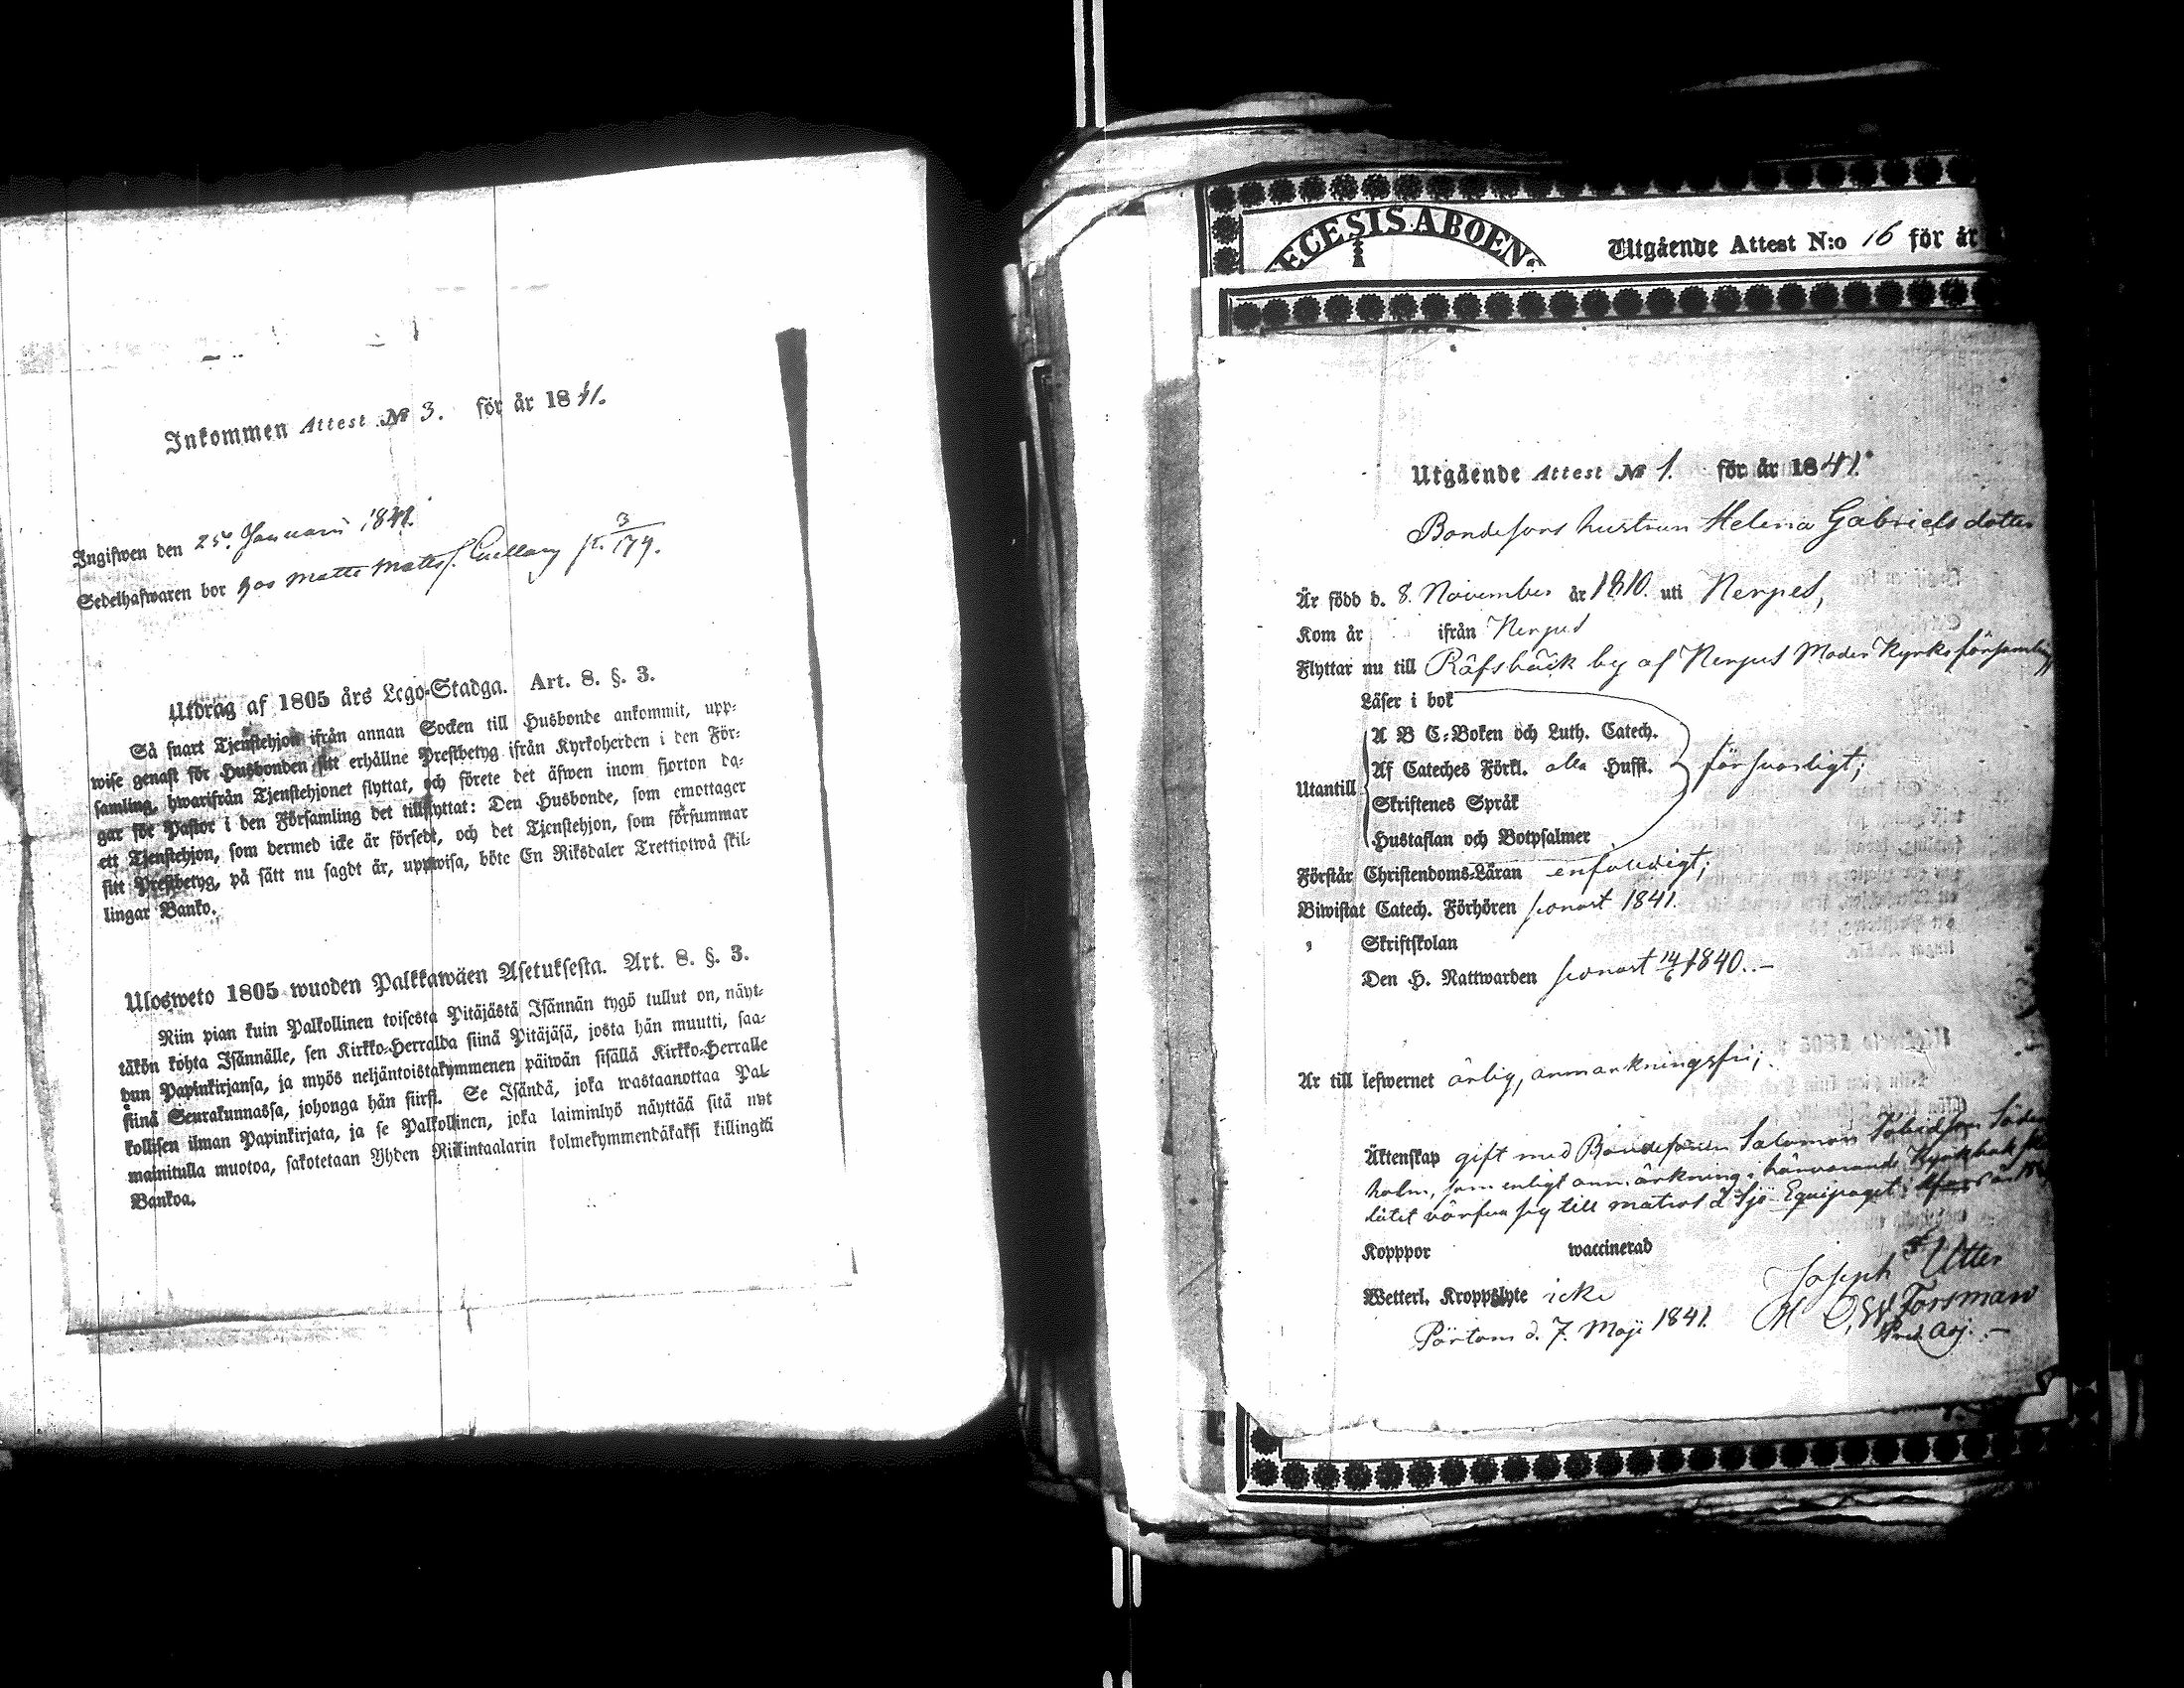 Inkommen Attest № 3. för år 1841.
Ingifwen den 25. Januarii 1841.
Sedelhafwaren bor hos Matts Matts S. 3/174.
Utdrag af 1805 års Lego-Stadga. Art. 8. §. 3.
Så snart Tjenstehjon ifrån annan Socken till Husbonde ankommit, upp-
wise genast för Husbonden sitt erhållne Prestbetyg ifrån Kyrkoherden i den För-
samling, hwarifrån Tjenstehjonet flyttat, och förete det äfwen inom fjorton da-
gar för Pastor i den Församling det tillflyttat: Den Husbonde, som emottager
ett Tjenstehjon, som dermed icke är försedt, och det Tjenstehjon, som försummar
sitt Prestbetyg, på sätt nu sagdt är, uppwisa, böte En Riksdaler Trettiotwå skil-
lingar Banko.
Ulosweto 1805 wuoden Palkkawäen Asetuksesta. Art. 8. §. 3.
Niin pian kuin Palkollinen toisesta Pitäjästä Isännän tygö tullut on, näyt-
täkön kohta Isännälle, sen Kirkko-Herralda siinä Pitäjäsä, josta hän muutti, saa-
dun Papinkirjansa, ja myös neljäntoistakymmenen päiwän sisällä Kirkko-Herralle
siinä Seurakunnassa, johonga hän siirsi. Se Isändä, joka wastaanottaa Pal-
kollisen ilman Papinkirjata, ja se Palkollinen, joka laiminlyö näyttää sitä nyt
mainitulla muotoa, sakotetaan Yhden Riikintaalarin kolmekymmendäkaksi killingiä
Bankoa.
ECESIS ABOEN
Utgående Attest N:o 16 för år
Utgående Attest № 1. för år 1841.
Bondesons hustrun Helena Gabriels dotter
Är född d. 8. November år 1810. uti Nerpes,
Kom år ifrån Nerpes
Flyttar nu till Räfsbäck by af Nerpes Moder Kyrko församling
Läser i bok
A B C-Boken och Luth. Catech.
Utantill Af Cateches Förkl. alla Hufst. försvarligt;
Skriftenes Språk
Hustaflan och Botpsalmer
Förstår Christendoms-Läran enfaldigt;
Biwistat Catech. Förhören senast 1841.
, Skriftskolan
Den H. Nattwarden senast 14/6 1840. –
Är till lefwernet ärlig, anmärkningsfri;
Äktenskap gift med Bondesonen Salomon
holm, som enligt anmärkning i härvarande Kyrkbok
låtit värfva sig till matros å Sjö-Equipaget i
Kopppor waccinerad
Wetterl. Kroppslyte icke
Joseph Utter
Pörtom d. 7. Maji 1841.
Forsman
Past. Adj. –